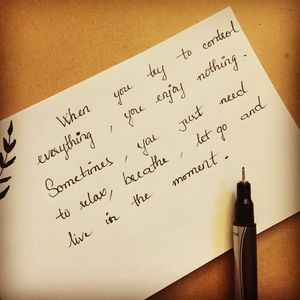 When you try to control
everything, you enjoy nothing.
Sometimes, you just need
to relax, breathe, let go and
live in the moment.